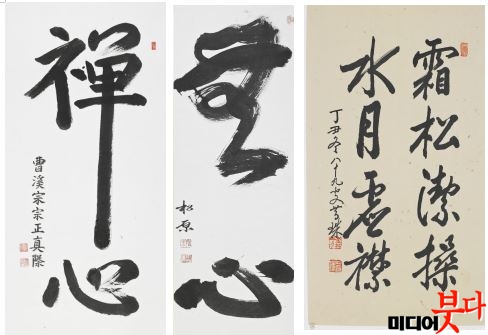 禪心
曹溪宗宗正真際
無心
松原
霜松潔操
水月虛襟
丁丑冬八十九叟昔珠
미디어붓다